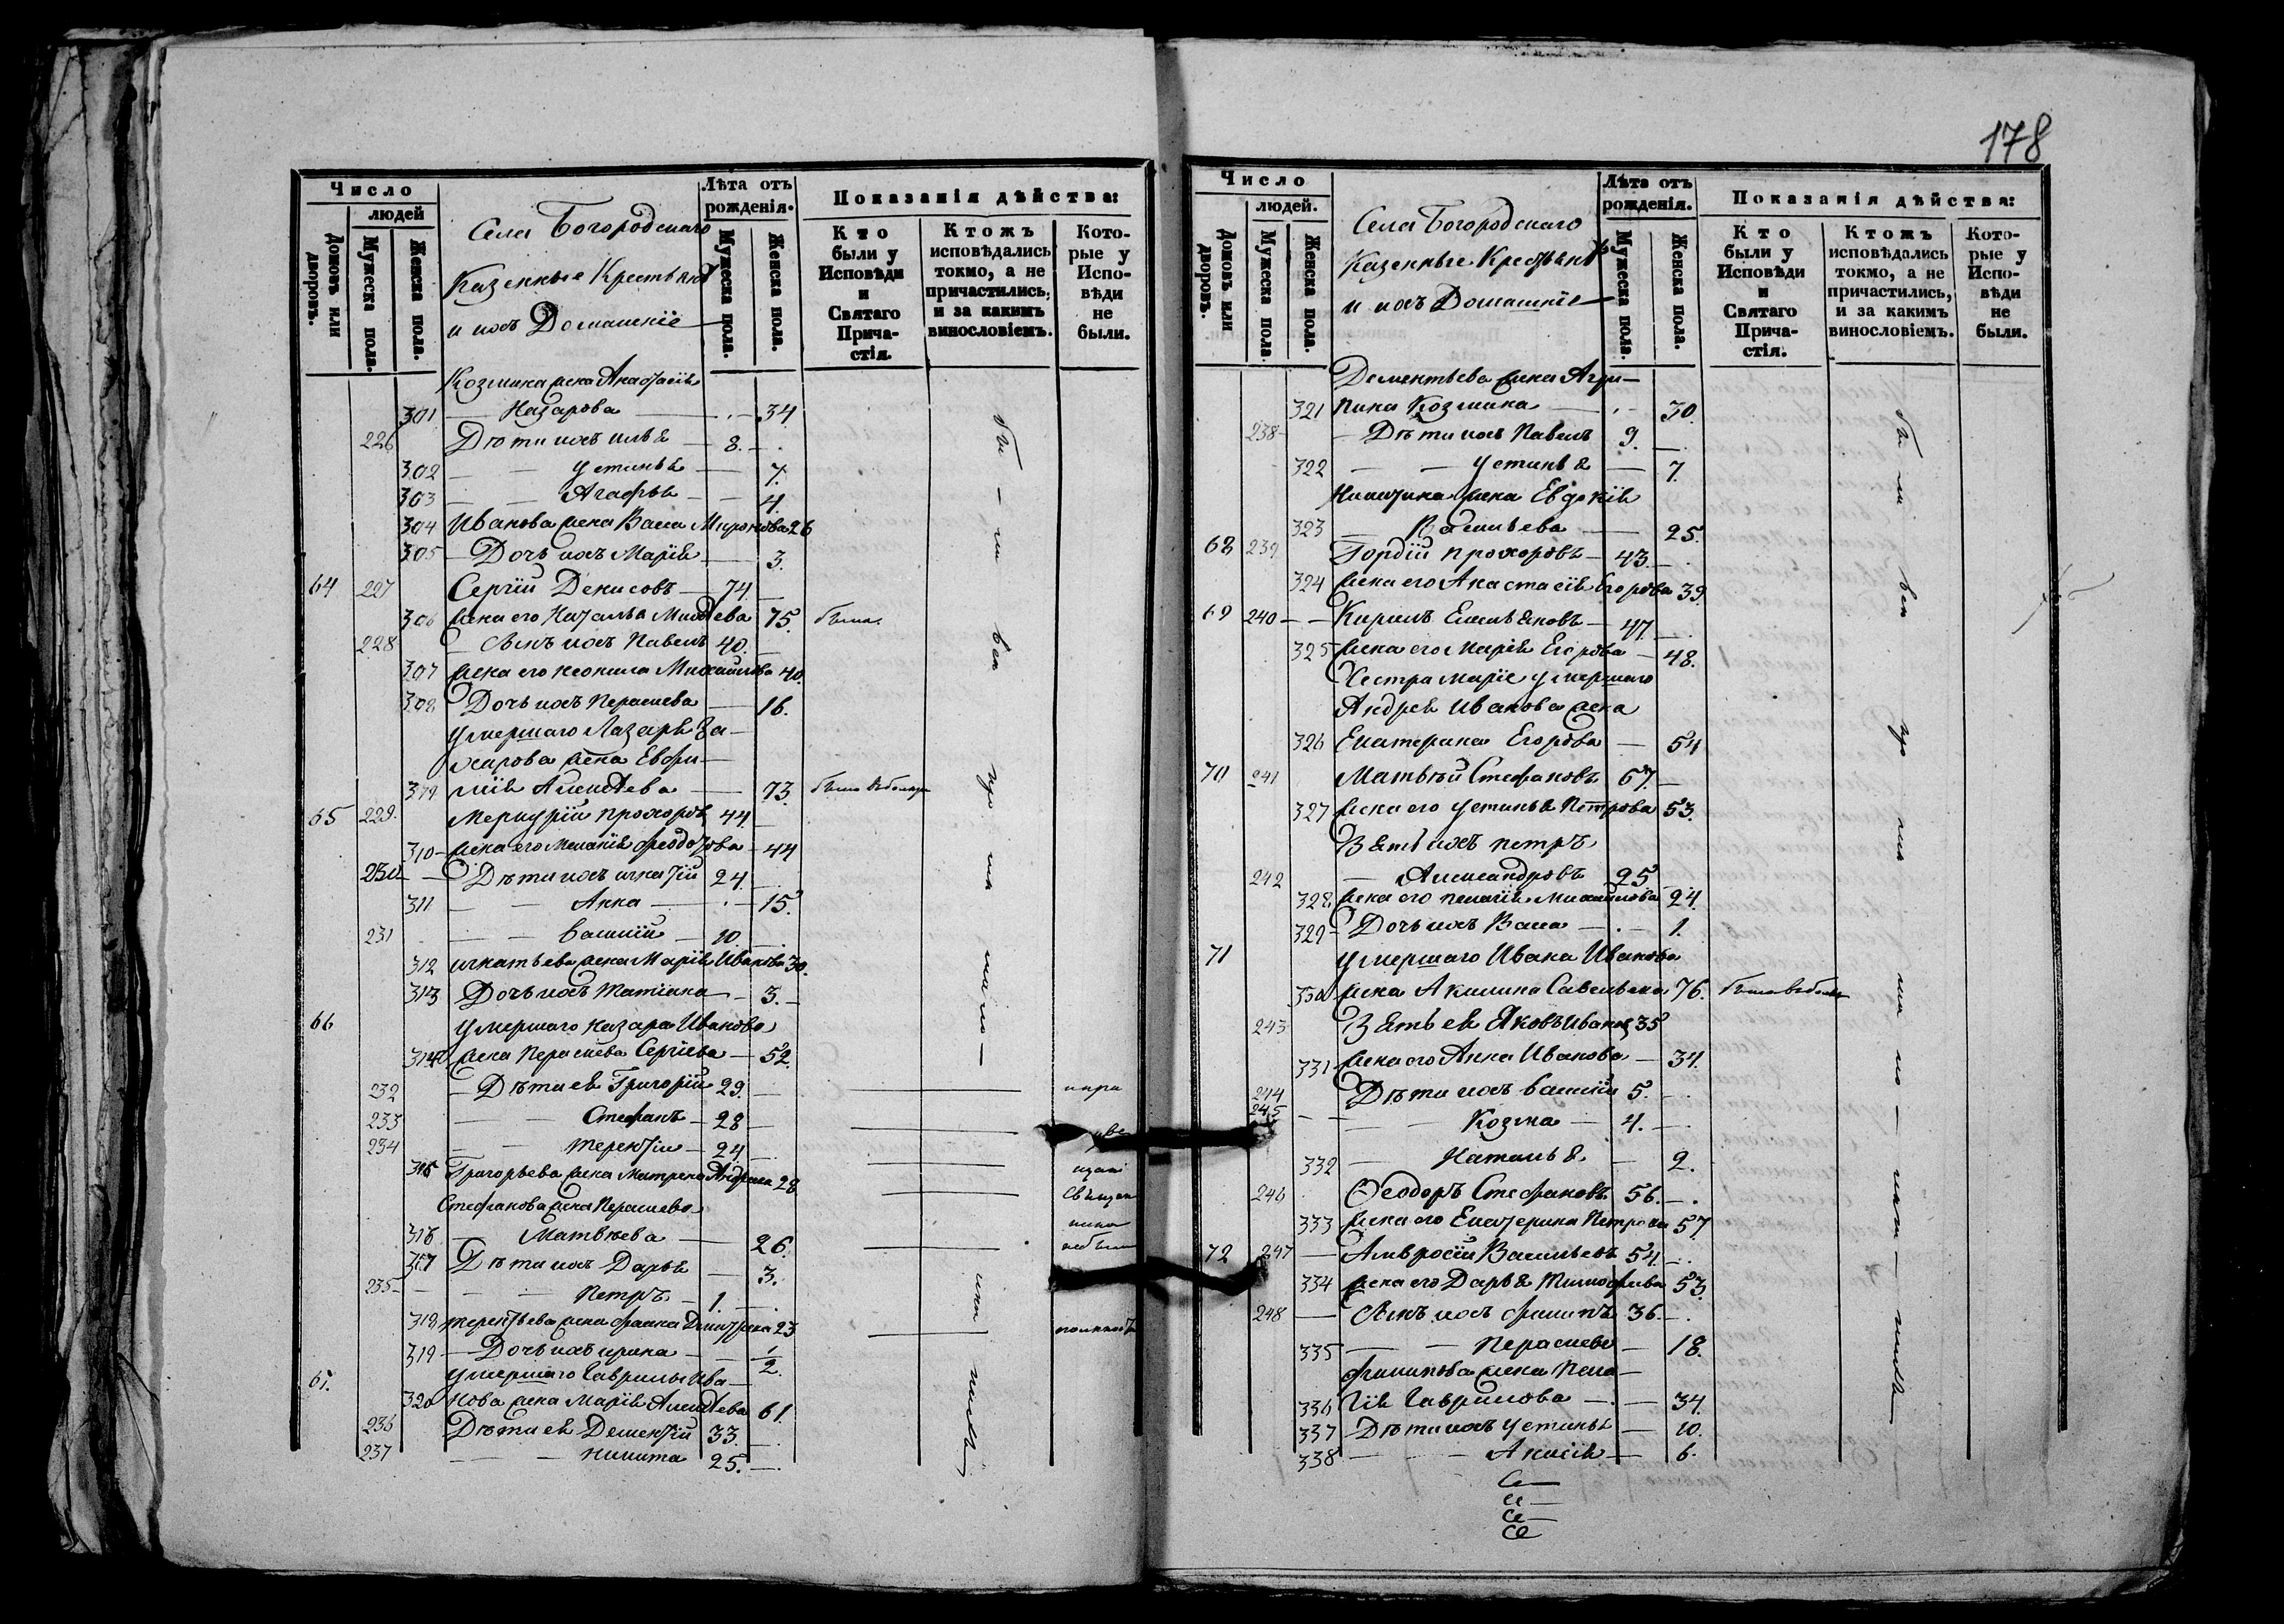 178
Число
людей
Домовъ или дворовъ.
Мужеска пола.
Женска пола.
Села Богородскаго
Казенные Крестьяне
и ихъ Домашніе
Лѣта отъ рожденія.
Мужеска пола.
Женска пола.
Показанія дѣйства:
Кто были у Исповѣди и Святаго Причастія.
Ктожъ исповѣдались токмо, а не причастились, и за какимъ винословіемъ.
Которые у Исповѣди не были.
Козмина жена Анастасія
301 Назарова 34
226 Дѣти ихъ Илья 8.
302 Устинья 7.
303 Агафья 4.
304 Иванова жена Васса Миронова 26
305 Дочь ихъ Марія 3.
64 227 Сергій Денисовъ 74
306 жена его Наталья 75. была
228 Сынъ ихъ Павелъ 40.
307 жена его Неонила Михайлова 40.
308 Дочь ихъ Парасковья 16.
умершаго Лазаря За-
харова жена Евфи-
309 мія Алексѣева 73. была
65 229. Меркурій Прохоровъ 44
310 жена его Меланія Феодотова 44
230 Дѣти ихъ Игнатій 24.
311 Анна 15.
231 Василій 10.
312 Игнатьева жена Марія Иванова 30.
313 Дочь ихъ Татіана 3.
66 умершаго Назара Иванова
314 жена Парасковья Сергіева 52.
232 Дѣти ея Григорій 29.
233 Стефанъ 28
234 Терентій 24
315 Григорьева жена Матрена 28
Стефанова жена Парасковья
316 Матвѣева 26.
317 Дѣти ихъ Дарья 3.
235 Петръ 1.
318 Терентьева жена 23
319 Дочь ихъ Ирина 1/2.
67. умершаго Гаврилы Ива-
320 нова жена Марія Алексѣева 61.
236 Дѣти ея Дементій 33.
237 Никита 25.
Число
людей.
Домовъ или дворовъ.
Мужеска пола.
Женска пола.
Села Богородскаго
Казенные Крестьяне
и ихъ Домашніе
Лѣта отъ рожденія.
Мужеска пола.
Женска пола.
Показанія дѣйства:
Кто были у Исповѣди и Святаго Причастія.
Ктожъ исповѣдались токмо, а не причастились, и за какимъ винословіемъ.
Которые у Исповѣди не были.
Дементьева жена Агри-
321 пина Козмина 30.
238 Дѣти ихъ Павелъ 9.
322 Устинья 7.
Никитина жена Евдокія
323 Васильева 25.
68 239 Гордій Прохоровъ 43.
324 жена его Анастасія Егорова 39.
69 240 Кирилъ Емельяновъ 47.
325 жена его Марія Егорова 48.
Сестра Маріе умершаго
Андрея Иванова жена
326 Екатерина Егорова 54
70 241 Матвѣй Стефановъ 67.
327 жена его Устинья Петрова 53.
Зять ихъ Петръ
242 Александровъ 25
328. жена его Пелагія Михайлова 24.
329 Дочь ихъ Васса 1.
71 умершаго Ивана Иванова
330 жена Акилина Савельева 76. была
243 Зять ея Яковъ Ивановъ 35
331 жена его Анна Иванова 34.
244 Дѣти ихъ Василій 5.
245 Козма 4.
332 Наталья 2.
246 Феодоръ Стефановъ 56.
333 жена его Екатерина Петрова 57
72 247 Амвросій Васильевъ 54.
334 жена его Дарья Тимофѣева 53.
248 Сынъ ихъ Филипъ 36.
335 Парасковья 18.
Филипова жена Пела-
336 гія Гаврилова 34.
337 Дѣти ихъ Устинья 10.
338 Аксинія 6.